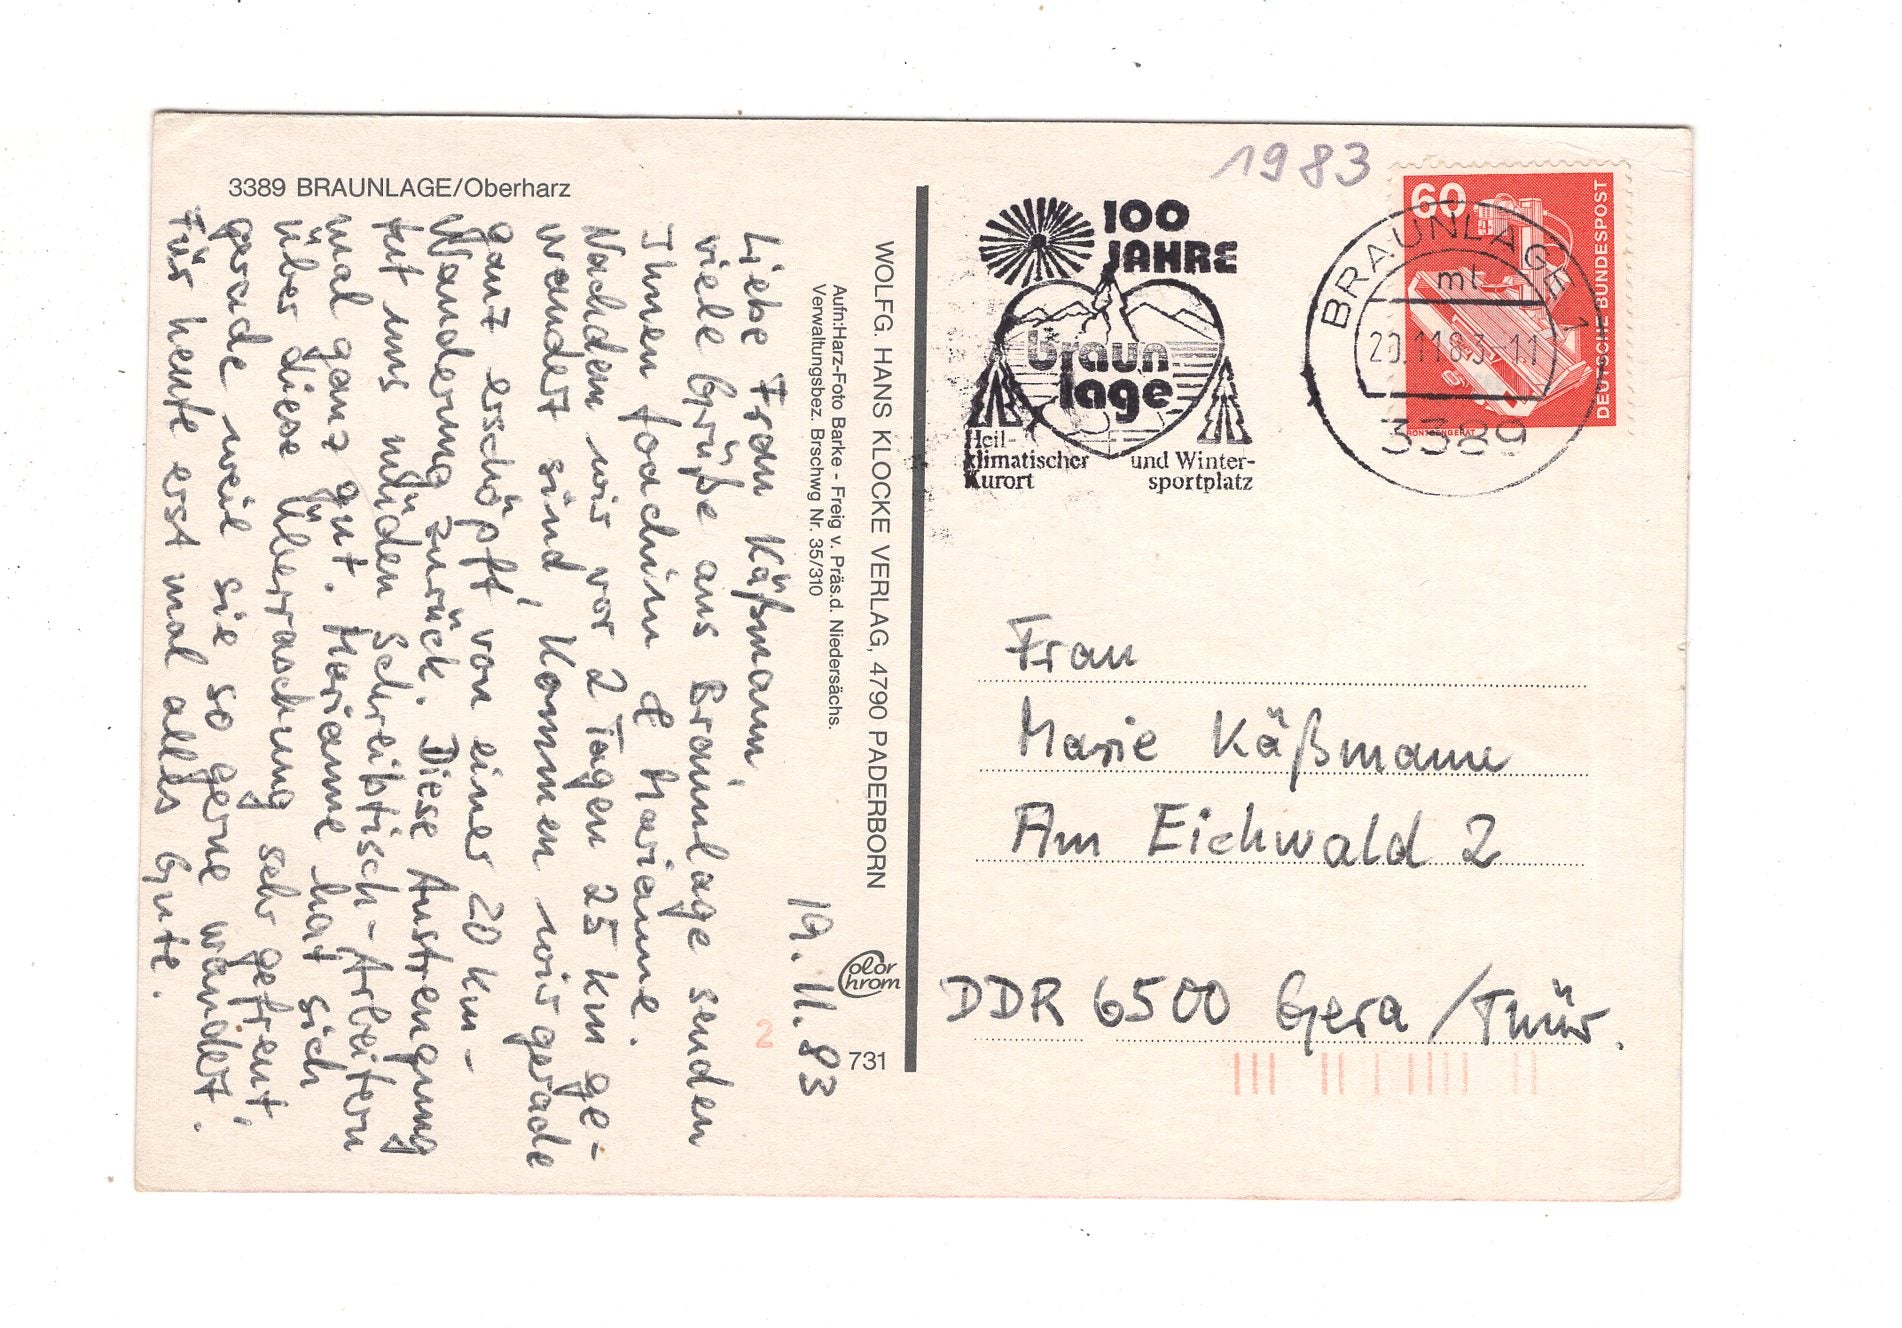 3389 BRAUNLAGE/Oberharz
19.11.83
Liebe Frau Käßmann,
viele Grüße aus Braunlage senden
Ihnen Joachim & Marianne.
Nachden wir vor 2 Tagen 25 km ge-
wandert sind, kommen wir gerade
ganz erschöpft von einer 20 km-
Wanderung zurück. Diese Anstrengung
tut uns müden Schreibtisch-Arbeitern
mal ganz gut. Marianne hat sich
über diese Überraschung sehr gefreut,
gerade weil sie so gerne wandert.
Für heute erst mal alles Gute.
Aufn:Harz-Foto Barke - Freig v. Präs.d. Niedersächs.
Verwaltungsbez. Brschwg Nr. 35/310
WOLFG. HANS KLOCKE VERLAG, 4790 PADERBORN
Color
Chrom
731
2
1983
100
JAHRE
Braun
lage
Heil-
klimatischer
Kurort
und Winter-
sportplatz
BRAUNLAGE 1
ml
20.11.83-11
3389
60
DEUTSCHE BUNDESPOST
RÖNTGENGERÄT
Frau
Marie Käßmann
Am Eichwald 2
DDR 6500 Gera /Thür.